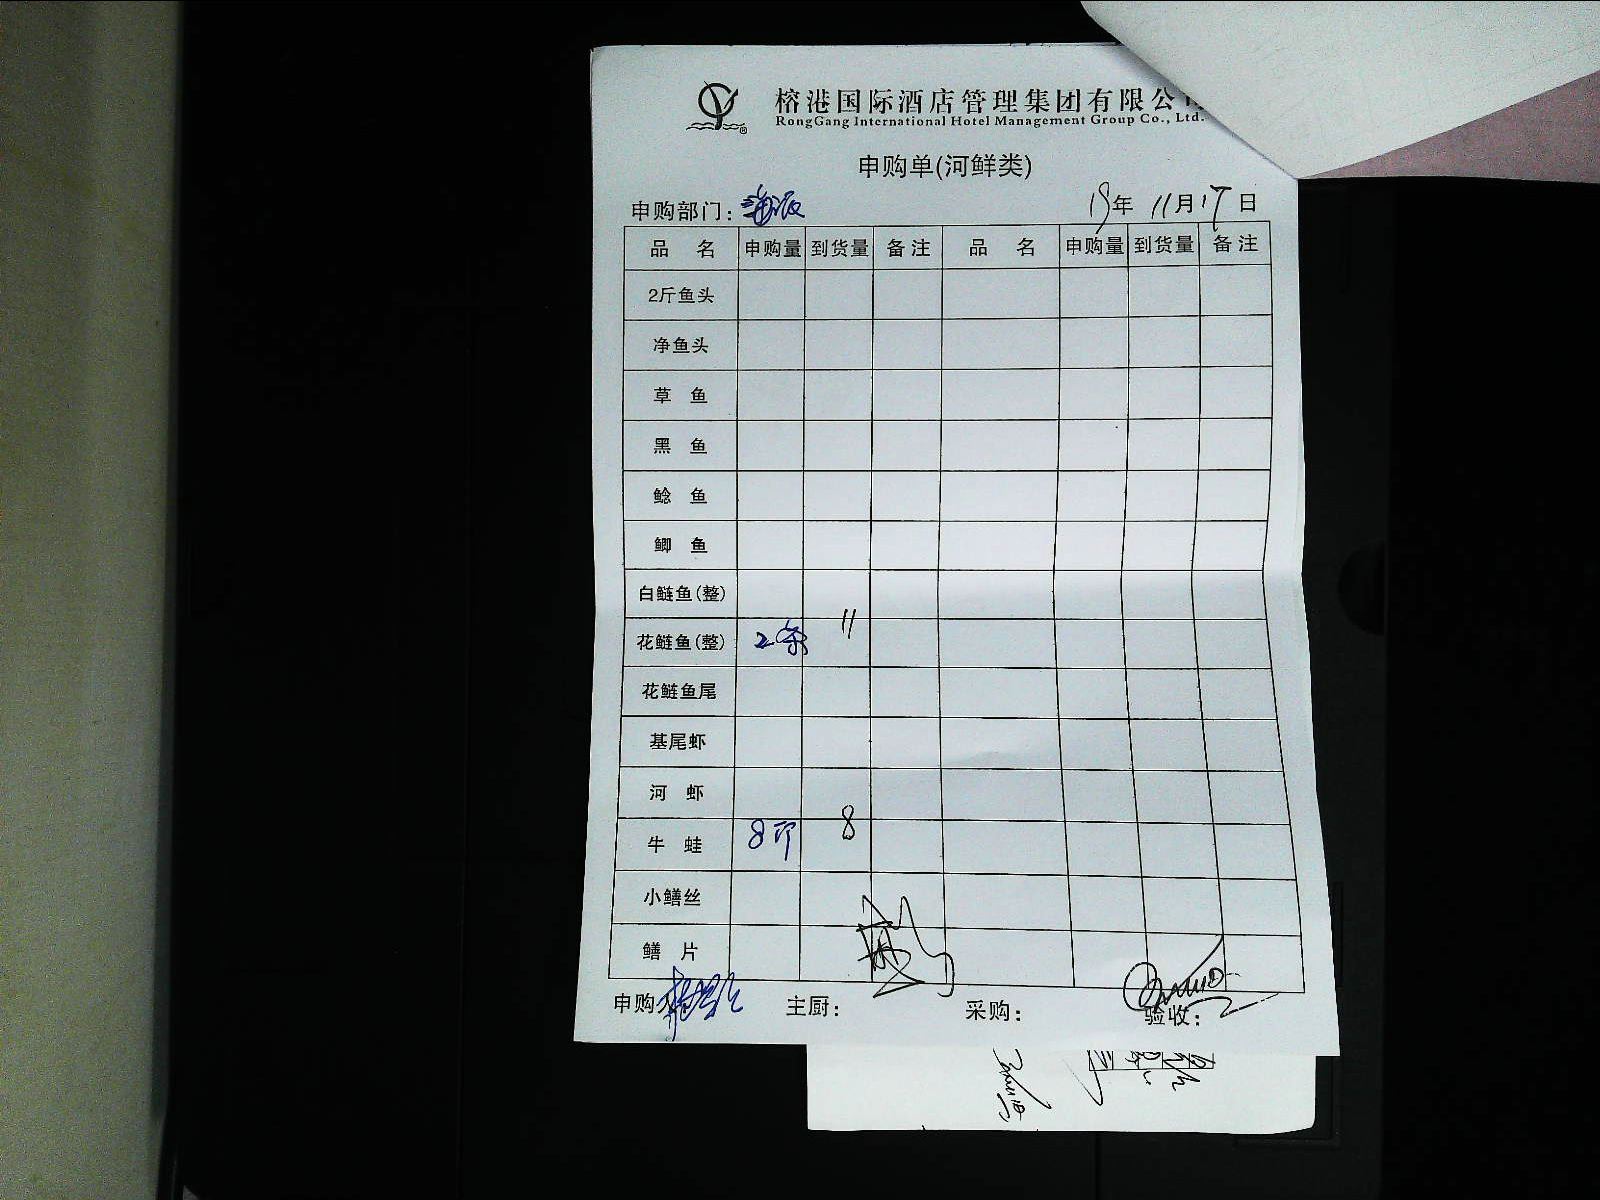 榕港国际酒店管理集团有限公司
RongGang International Hotel Management Group Co., Ltd.
申购单(河鲜类)
申购部门: 海派 19年 11月17日
品 名 申购量 到货量 备注 品 名 申购量 到货量 备注
2斤鱼头
净鱼头
草 鱼
黑 鱼
鲶 鱼
鲫 鱼
白鲢鱼(整)
花鲢鱼(整) 2条 11
花鲢鱼尾
基尾虾
河 虾
牛 蛙 8斤 8
小鳝丝
鳝 片
申购人 主厨: 采购: 验收: